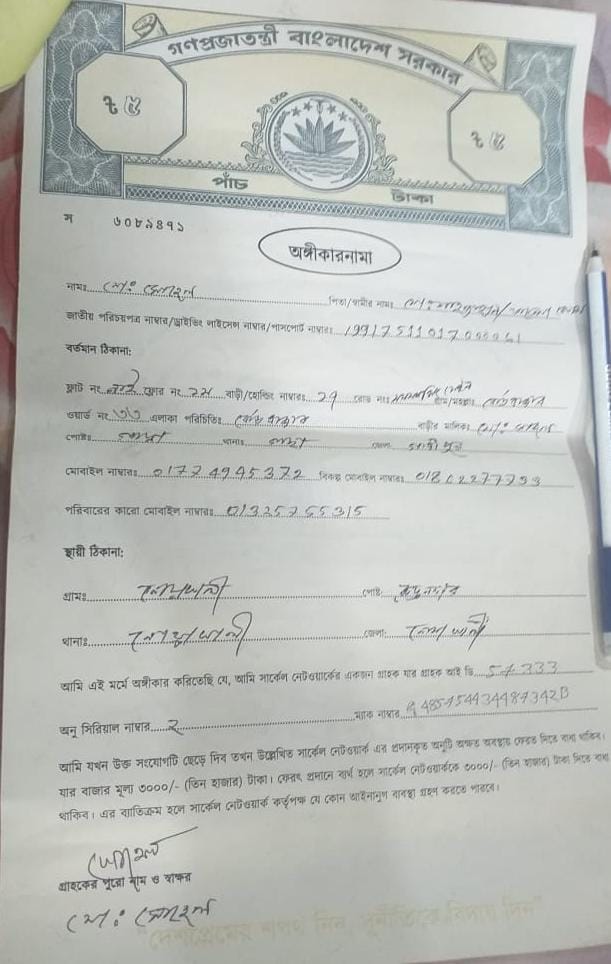 গণপ্রজাতন্ত্রী বাংলাদেশ সরকার
৳ ৫ ৳ ৫
পাঁচ টাকা
ম ৬০৮৯৪৭১
অঙ্গীকারনামা
নামঃ মোঃ সোহেল পিতা/স্বামীর নামঃ
জাতীয় পরিচয়পত্র নাম্বার/ড্রাইভিং লাইসেন্স নাম্বার/পাসপোর্ট নাম্বারঃ
বর্তমান ঠিকানা:
ফ্ল্যাট নং ফ্লোর নং ২য় বাড়ী/হোল্ডিং নাম্বারঃ 29 রোড নংঃ গ্রাম/মহল্লাঃ
ওয়ার্ড নং ৩৩ এলাকা পরিচিতিঃ বাড়ীর মালিকঃ মোঃ
পোষ্টঃ থানাঃ জেলাঃ গাজীপুর
মোবাইল নাম্বারঃ 01724945372 বিকল্প মোবাইল নাম্বারঃ
পরিবারের কারো মোবাইল নাম্বারঃ 01325755315
স্থায়ী ঠিকানা:
গ্রামঃ পোষ্টঃ
থানাঃ নোয়াখালী জেলাঃ নোয়াখালী
আমি এই মর্মে অঙ্গীকার করিতেছি যে, আমি সার্কেল নেটওয়ার্কের একজন গ্রাহক যার গ্রাহক আই ডি 57333
অনু সিরিয়াল নাম্বার ২ ম্যাক নাম্বার
আমি যখন উক্ত সংযোগটি ছেড়ে দিব তখন উল্লেখিত সার্কেল নেটওয়ার্ক এর প্রদানকৃত অনুটি অক্ষত অবস্থায় ফেরত দিতে বাধ্য থাকিব।
যার বাজার মূল্য ৩০০০/- (তিন হাজার) টাকা। ফেরৎ প্রদানে ব্যর্থ হলে সার্কেল নেটওয়ার্ককে ৩০০০/- (তিন হাজার) টাকা দিতে বাধ্য
থাকিব। এর ব্যতিক্রম হলে সার্কেল নেটওয়ার্ক কর্তৃপক্ষ যে কোন আইনানুগ ব্যবস্থা গ্রহণ করতে পারবে।
সোহেল
গ্রাহকের পুরো নাম ও স্বাক্ষর
মোঃ সোহেল
"দেশপ্রেমের শপথ নিন, দুর্নীতিকে বিদায় দিন"